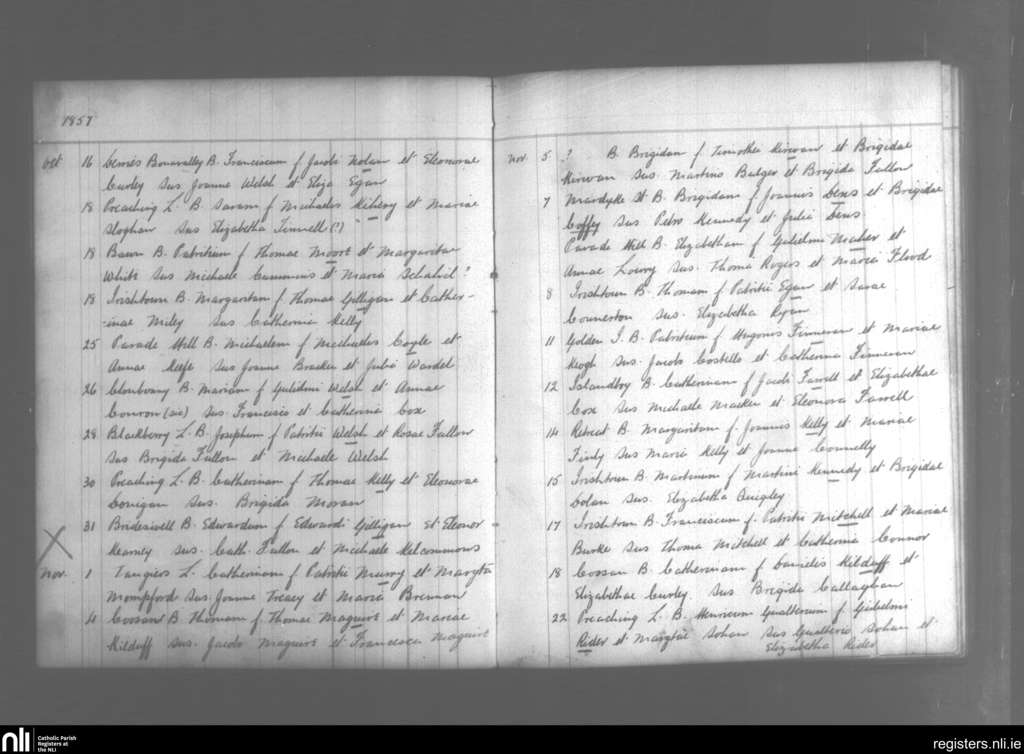 1857
Oct 16 Bonavalley B. Franciscum f. Jacobi Nolan et Eleonorae
Curley Sus. Joanne Welsh et Eliza Egan
18 Preaching L. B. Saram f. Michaelis et Mariae
Sloghan Sus Elizabetha Finnell (?)
18 Bawn B. Patritium f. Thomae et Margaritae
White Sus Michaele Cummins et Maria Schahil?
18 Irishtown B. Margaritam f. Thomae Gilligan et Cather-
-inae Miley Sus Catherina Kelly
25 Parade Hill B. Michaelem f. Michaelis Coyle et
Annae Keefe Sus Joanne Bracken et Julia Wardel
26 B. Mariam f. Gulielmi Welsh et Annae
Conroon (sic) Sus. Francisco et Catherina Cox
28 Blackberry L. B. Josephum f. Patritii Welsh et Rosae Fallon
Sus Brigida Fallon et Michaele Welsh
30 Preaching L. B. Catherinam f. Thomae Kelly et Eleonorae
Corrigan Sus. Brigida Moran
31 Brideswell B. Edwardum f. Edwardi Gilligan et Eleonor
Kearney Sus. Cath. Fallon et Michaele
X
Nov. 1 Tangiers L. Catherinam f. Patritii Murry et Margta
Sus. Joanne Treacy et Maria Brennan
4 Cossan B Thomam f. Thomae Maguire et Mariae
Kilduff Sus. Jacobo Maguire et Francesca Maguire
Nov. 5 ? B. Brigidam f. Timothei Kirwan et Brigidae
Kirwan Sus. Martino Bulger et Brigida Fallon
7 Mardyke St B. Brigidam f. Joannis Lens et Brigidae
Coffey Sus Petro Kennedy et Julia Lens
Parade Hill B. Elizabetham f. Gulielmi Maher et
Annae Lowry Sus. Thoma Rogers et Maria Flood
8 Irishtown B. Thomam f. Patritii Egan et Sarae
Connerton Sus. Elizabetha Ryan
11 Golden I. B. Patritium f. Hugonis Finneran et Mariae
Keogh Sus. Jacobo Costello et Catherina Finneran
12 Islandboy B. Catherinam f. Jacobi Farrell et Elizabethae
Cox Sus Michaele Macken et Eleonora Farrell
14 Retreat B. Margaritam f. Joannis Kelly et Mariae
Finly Sus Maria Kelly et Joanne Connelly
15 Irishtown B. Martinum f. Martini Kennedy et Brigidae
Colan Sus. Elizabetha Quigley
17 Irishtown B. Franciscum f. Patritii Mitchell et Mariae
Burke Sus Thoma Mitchell et Catherina Connor
18 Cossan B. Catherinam f. Danielis Kilduff et
Elizabethae Curley. Sus Brigida Callaghan
22 Preaching L. B. Henricum Gualterum f. Gulielmi
Rider et Margtae Sohan Sus Gualterio Sohan et
Elizabetha Rider
nli Catholic Parish
Registers at
the NLI
registers.nli.ie